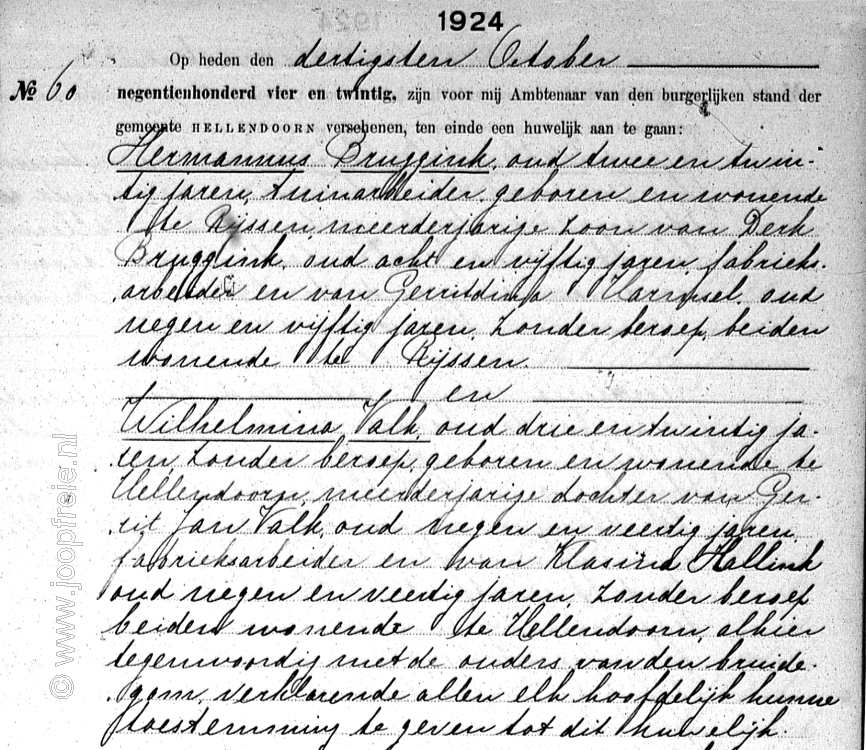 1924
Op heden den dertigsten October
№ 60
negentienhonderd vier en twintig, zijn voor mij Ambtenaar van den burgerlijken stand der
gemeente HELLENDOORN verschenen, ten einde een huwelijk aan te gaan:
Hermannus Bruggink, oud twee en twin-
tig jaren, tuinarbeider, geboren en wonende
te Rijssen, meerderjarige zoon van Derk
Bruggink, oud acht en vijftig jaren, fabrieks-
arbeider en van Gerritdina Harmsel, oud
negen en vijftig jaren, zonder beroep, beiden
wonende te Rijssen.
en
Wilhelmina Valk, oud drie en twintig ja-
ren, zonder beroep, geboren en wonende te
Hellendoorn, meerderjarige dochter van Ger-
rit Jan Valk, oud negen en veertig jaren,
fabrieksarbeider en van Klasina Hallink
oud negen en veertig jaren, zonder beroep
beiden wonende te Hellendoorn, alhier
tegenwoordig met de ouders van den bruide-
gom, verklarende allen elk hoofdelijk hunne
toestemming te geven tot dit huwelijk.
© www.joopfreie.nl